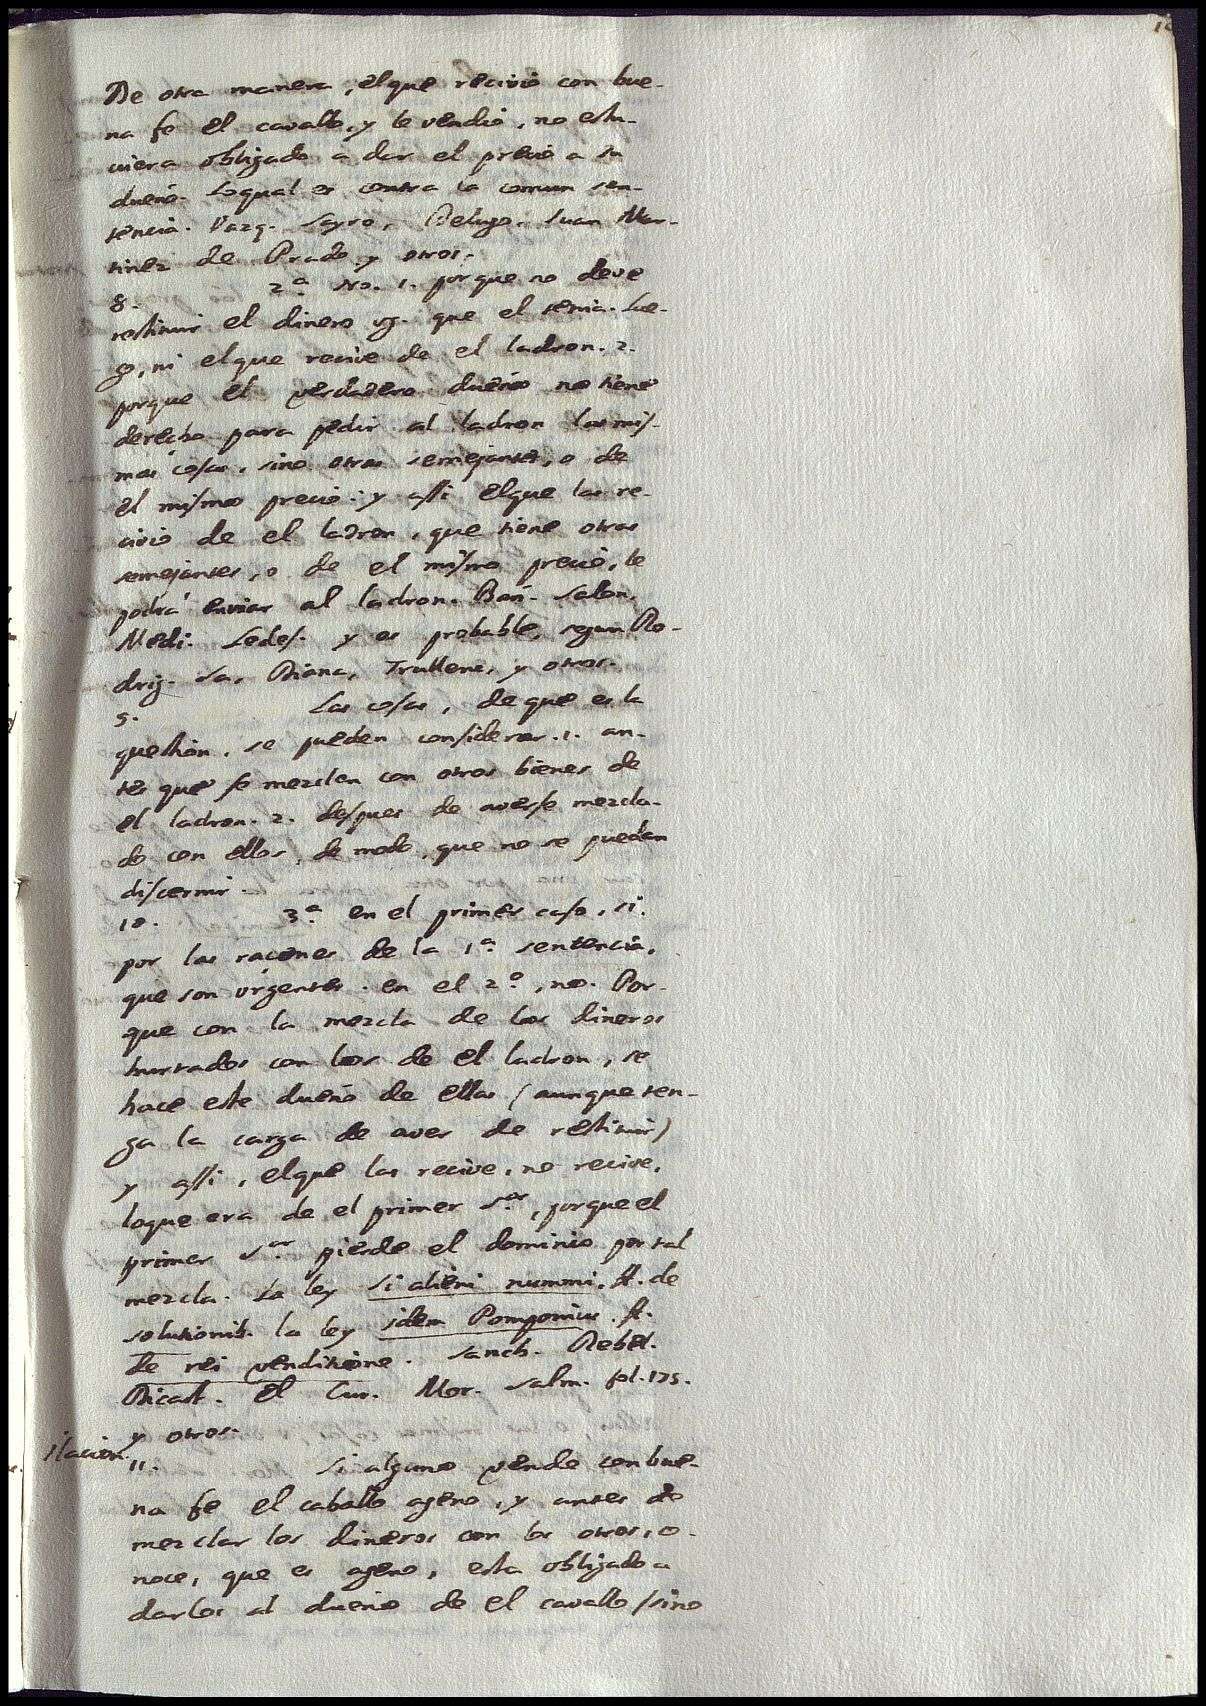 De otra manera, elque recivio con bue-
na fe el cavallo, y le vendio, no estu-
viera obligado a dar el precio a su
dueño. Loqual es contra la comun sen-
tencia. Vazq. Layro, Juan Mar-
tinez de Prado y otros.
8. 2ª No. 1. porque no deve
restituir el dinero vg. que el tenia. Lue-
go, ni elque recive de el ladron. 2.
porque el verdadero dueño no tiene
derecho para pedir al ladron las mis-
mas cosas, sino otras semejantes, o de
el mismo precio: y assi elque las re-
civio de el ladron, que tiene otras
semejantes, o de el mismo precio, le
podrá enviar al ladron. Bañ. Salon.
Medi. Ledes. y es probable, segun Ro-
drig. Sa, Diana, Trullenc, y otros.
9. Las cosas, de que es la
question, se pueden considerar. 1. an-
tes que se mezclen con otros bienes de
el ladron. 2. despues de averse mezcla-
do con ellos, de modo, que no se pueden
discernir.
10. 3ª en el primer caso, si.
por las raçones de la 1ª sentencia,
que son urgentes. en el 2º, no. Por-
que con la mezcla de los dineros
hurtados con los de el ladron, se
hace este dueño de ellos (aunque ten-
ga la carga de aver de restituir)
y assi, elque las recive, no recive,
loque era de el primer Sor, porque el
primer Sor pierde el dominio por tal
mezcla. La ley si alieni nummi. ff. de
solutionib. la ley idem Pomponius. ff.
de rei venditione. Sanch. Rebel.
Dicast. El Cur. Mor. Salm. fol. 175.
y otros.
ilacion.
11. Si alguno vende con bue-
na fe el caballo ageno, y antes de
mezclar los dineros con los otros, co-
noce, que es ageno, esta obligado a
darlos al dueño de el cavallo, sino